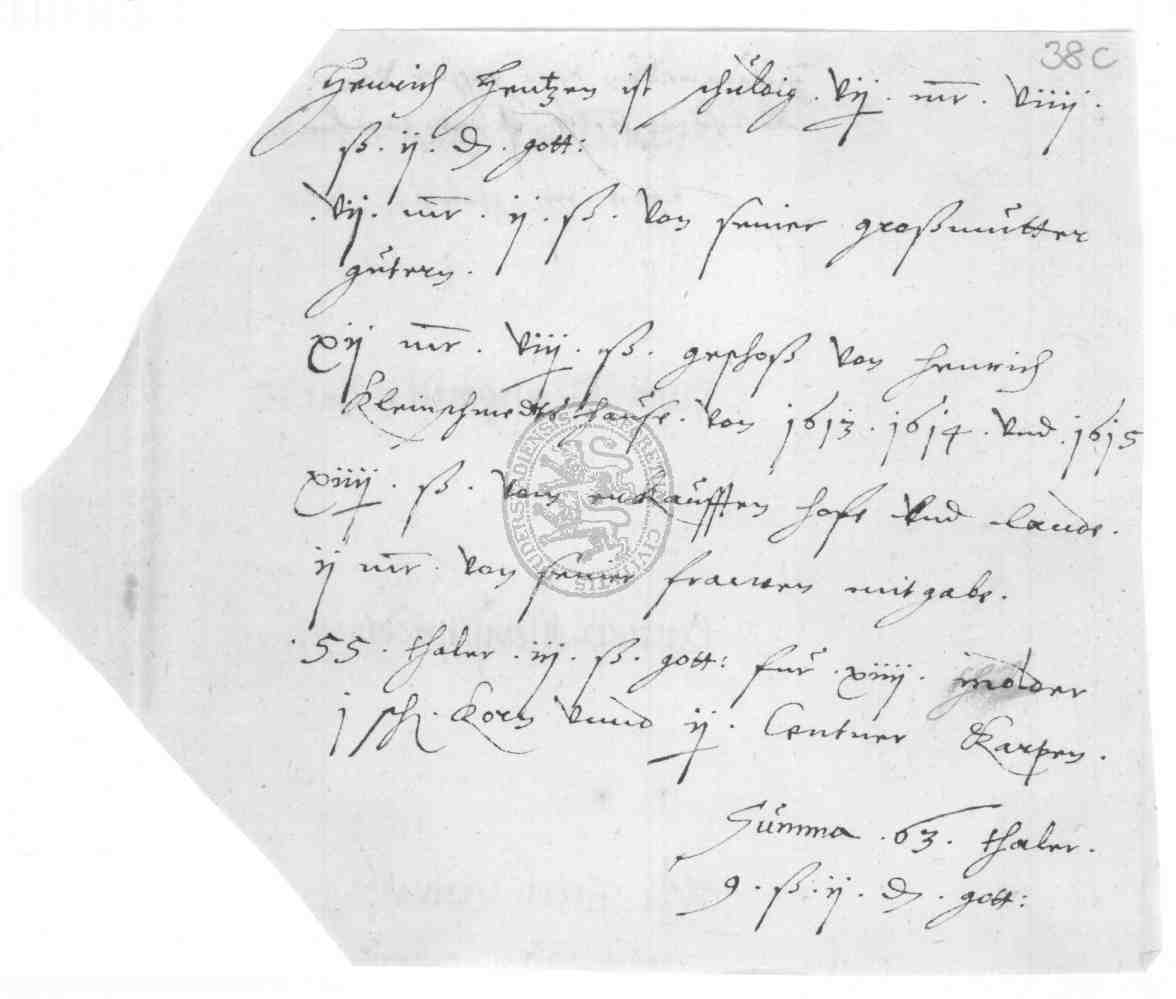 38 c
Henrich Hentzen ist schuldig . vij . mr . viiij .
ß . ij . d . gott:
. vij . mr . ij . ß . von seiner großmutter
gütern .
xij mr . viij . ß . geschoß von Henrich
Kleinschmedts hause . von 1613 . 1614 . vnd . 1615
xiiij . ß . vom erkaufften hofe vnd lande .
ij mr . von seiner frawen mitgabe .
. 55 . thaler . iij . ß . gott: für . xiiij . molder
j sch . Korn vnnd ij . Centner Karpen .
Summa . 63 . thaler .
9 . ß . ij . d . gott: